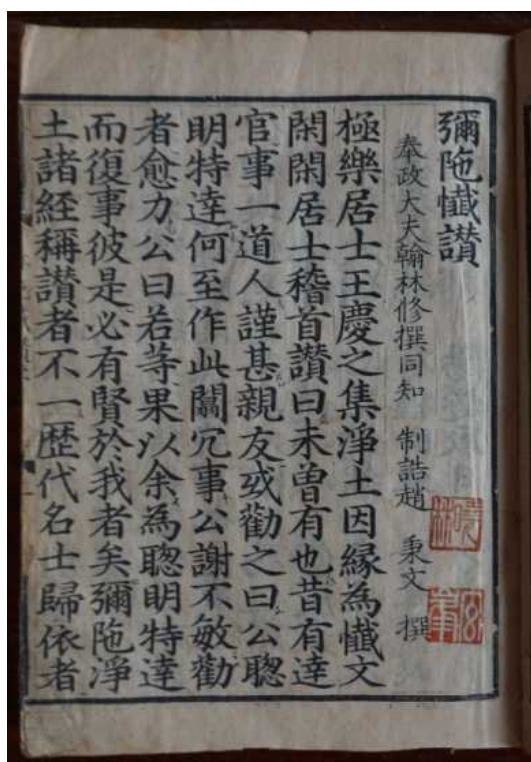 彌陁懺讃
奉政大夫翰林修撰同知　制誥趙　秉文　撰
極樂居士王慶之集淨土因緣為懺文
閑閑居士稽首讃曰未曾有也昔有達
官事一道人謹甚親友或勸之曰公聦
明特達何至作此闒冗事公謝不敏勸
者愈力公曰若等果以余為聦明特達
而復事彼是必有賢於我者矣彌陁淨
土諸經稱讃者不一歷代名士歸依者